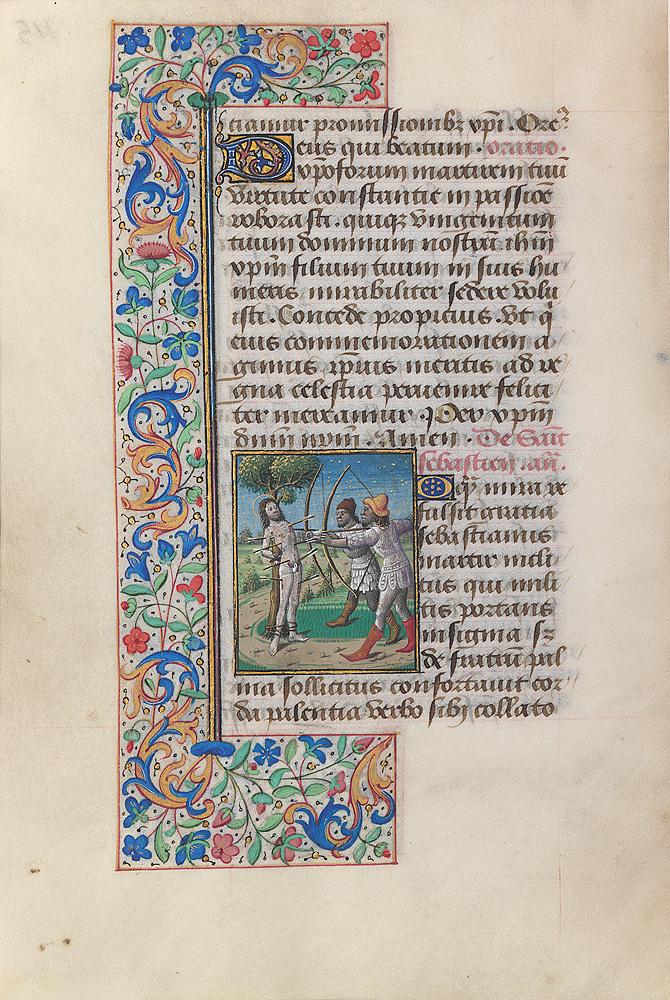 ciamur promissionibz xpi. Ore
eus qui beatum. oratio.
xpoforum martirem tuu
virtute constantie in passioe
roborasti. quiqz unigenitum
tuum dominum nostru ihm
xpm filium tuum in suis hu
meris mirabiliter sedere volu
isti. Concede propicius. Vt q
eius commemorationem a
gimus ipius meritis ad re
gna celestia peruenire felici
ter mereamur. Per xpm
dnm nrm. Amen. De Saint
sebastien. an.
O q mira re
fulsit gratia
sebastianus
martir incli
tus qui mili
tis portans
insignia sz
de fratru pal
ma sollicitus confortauit cor
da palentia verbo sibi collato